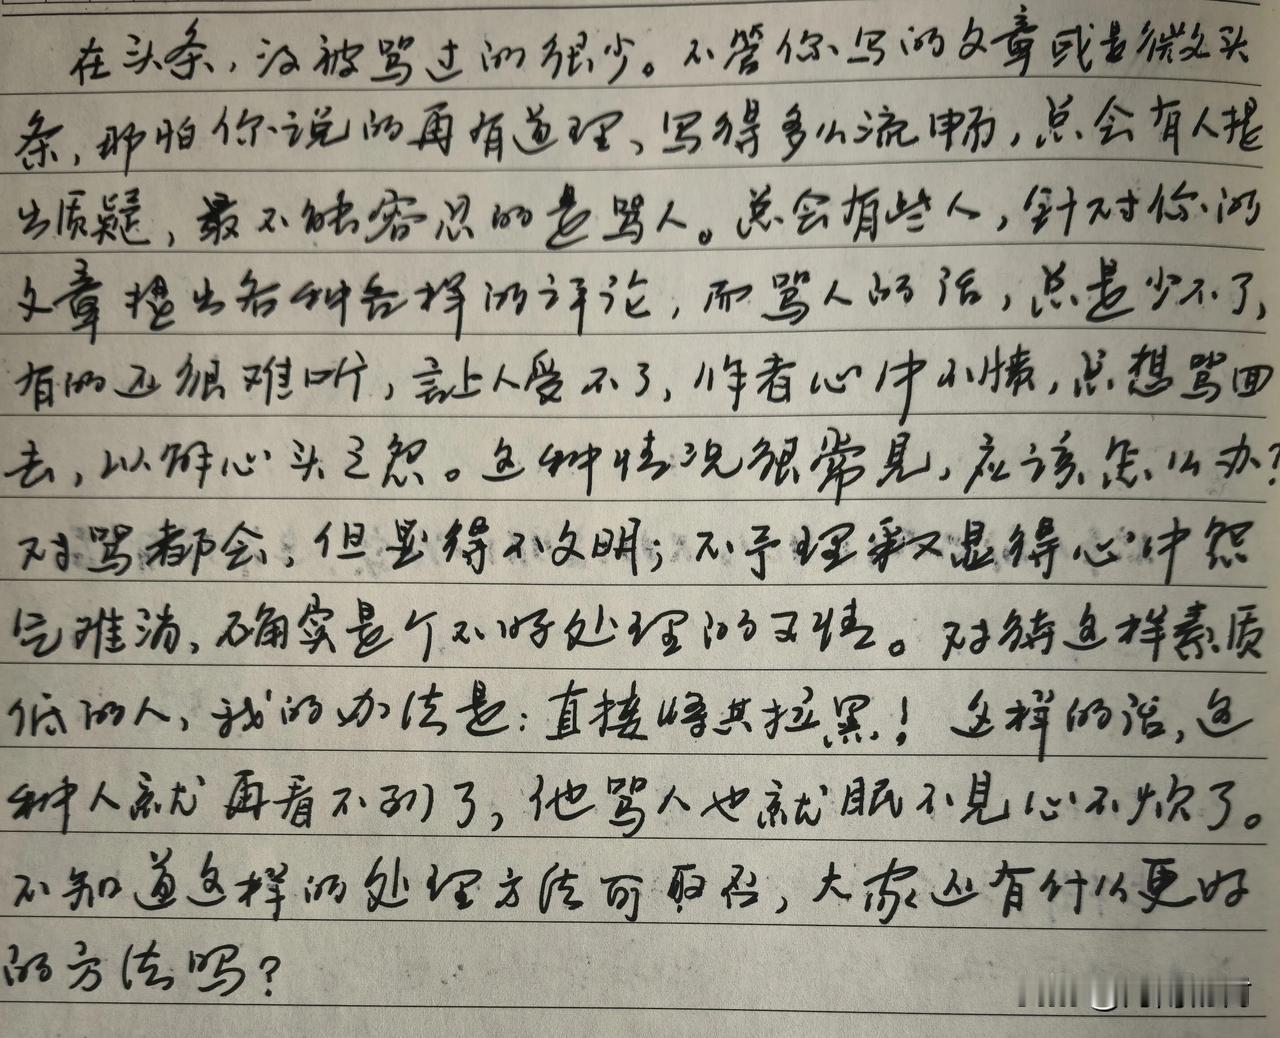 在头条，没被骂过的很少。不管你写的文章或是微头
条，那怕你说的再有道理、写得多么流畅，总会有人提
出质疑，最不能容忍的是骂人。总会有些人，针对你的
文章提出各种各样的评论，而骂人的话，总是少不了，
有的还很难听，让人受不了，作者心中不愤，总想骂回
去，以解心头之怨。这种情况很常见，应该怎么办？
对骂都会，但显得不文明；不予理采又显得心中怨
气难消，确实是个不好处理的事情。对待这样素质
低的人，我的办法是：直接将其拉黑！这样的话，这
种人就再看不到了，他骂人也就眼不见心不烦了。
不知道这样的处理方法可取否，大家还有什么更好
的方法吗？